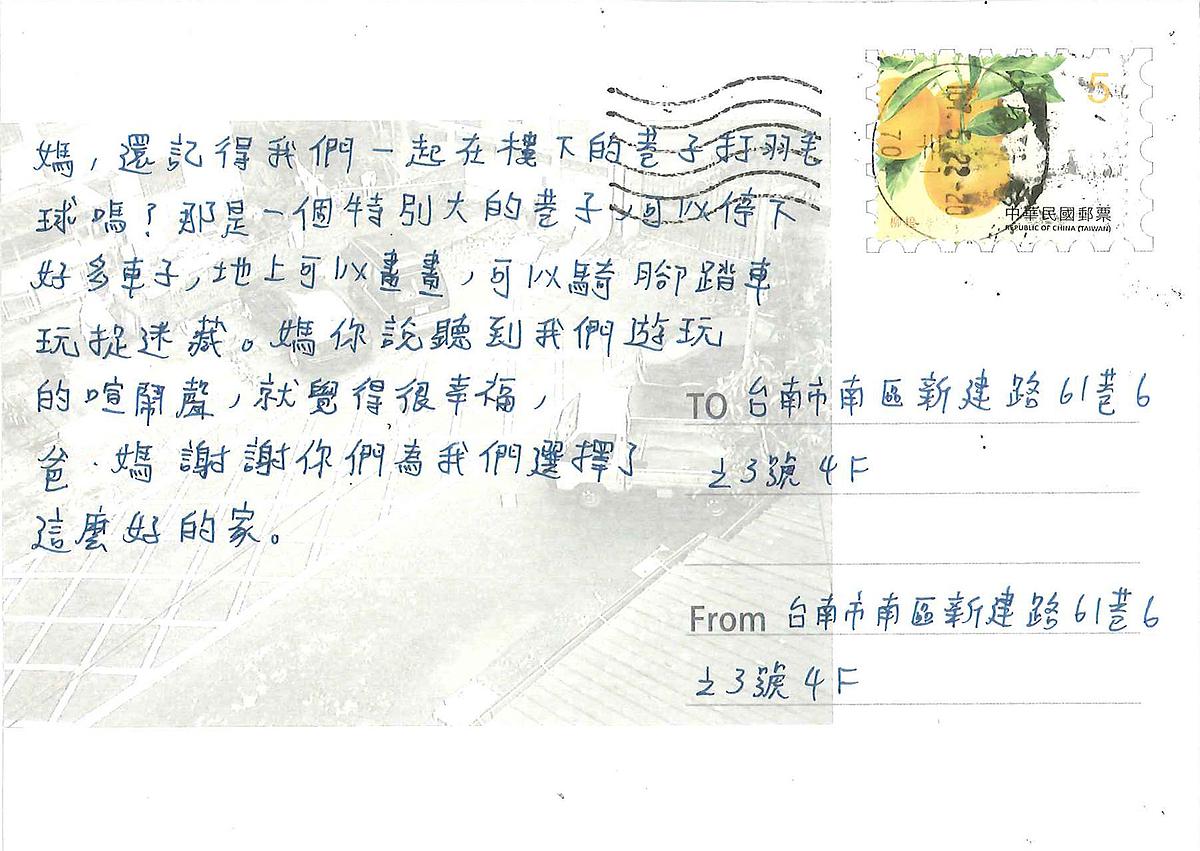 媽，還記得我們一起在樓下的巷子打羽毛
球嗎？那是一個特別大的巷子，可以停下
好多車子，地上可以畫畫，可以騎腳踏車
玩捉迷藏。媽你說聽到我們遊玩
的喧鬧聲，就覺得很幸福，
爸．媽 謝謝你們為我們選擇了
這麼好的家。
5
中華民國郵票
REPUBLIC OF CHINA (TAIWAN)
TO 台南市南區新建路61巷6
之3號4F
From 台南市南區新建路61巷6
之3號4F